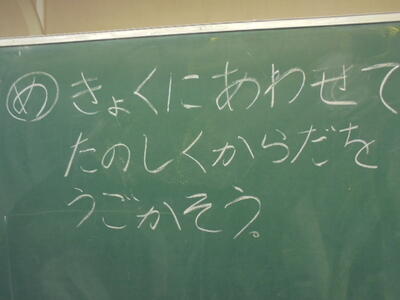 ㋱ きょくにあわせて
たのしくからだを
うごかそう。